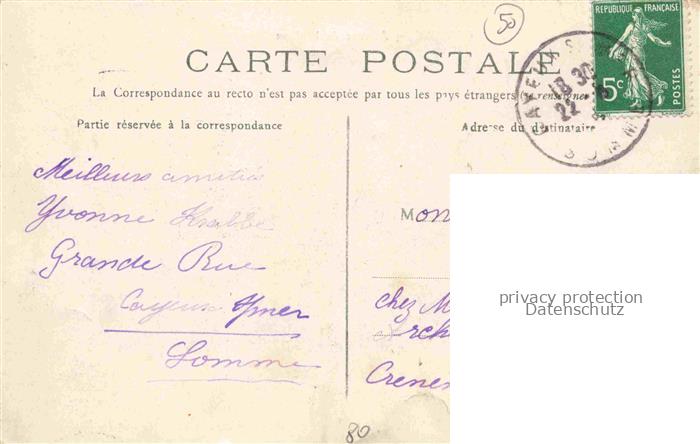 50
CARTE POSTALE
REPUBLIQUE FRANÇAISE
5c
POSTES
CAYEUX S
18 30
22
SOMME
La Correspondance au recto n'est pas acceptée par tous les pays étrangers (se renseigner
Partie réservée à la correspondance
Adresse du destinataire
Meilleurs amitiés
Yvonne
Grande Rue
Cayeux s/mer
Somme
Mon
chez M
80
privacy protection
Datenschutz